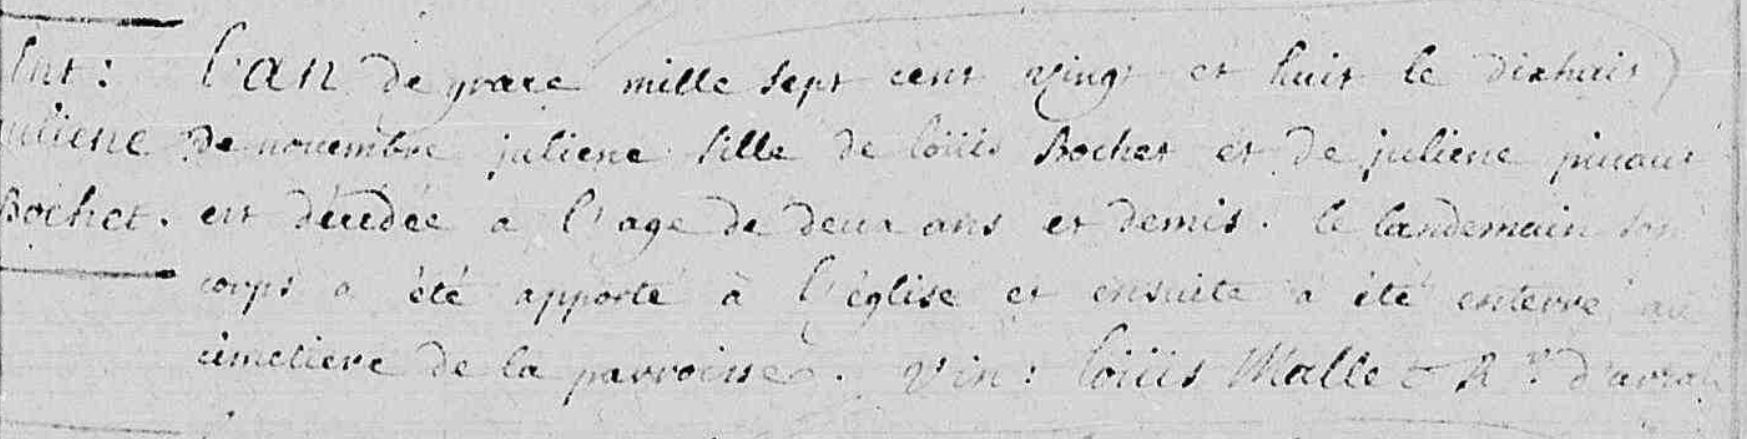 Int : L'an de grace mille sept cent vingt et huit le dixhuit
juliene de nouembre juliene fille de loüis Bochet et de juliene pinaut
Bochet . est décedée a l'age de deux ans et demis . le landemain son
corps a été apporté à l'église et ensuite a été enterré au
cimetiere de la parroisse . Vin : loüis Malle